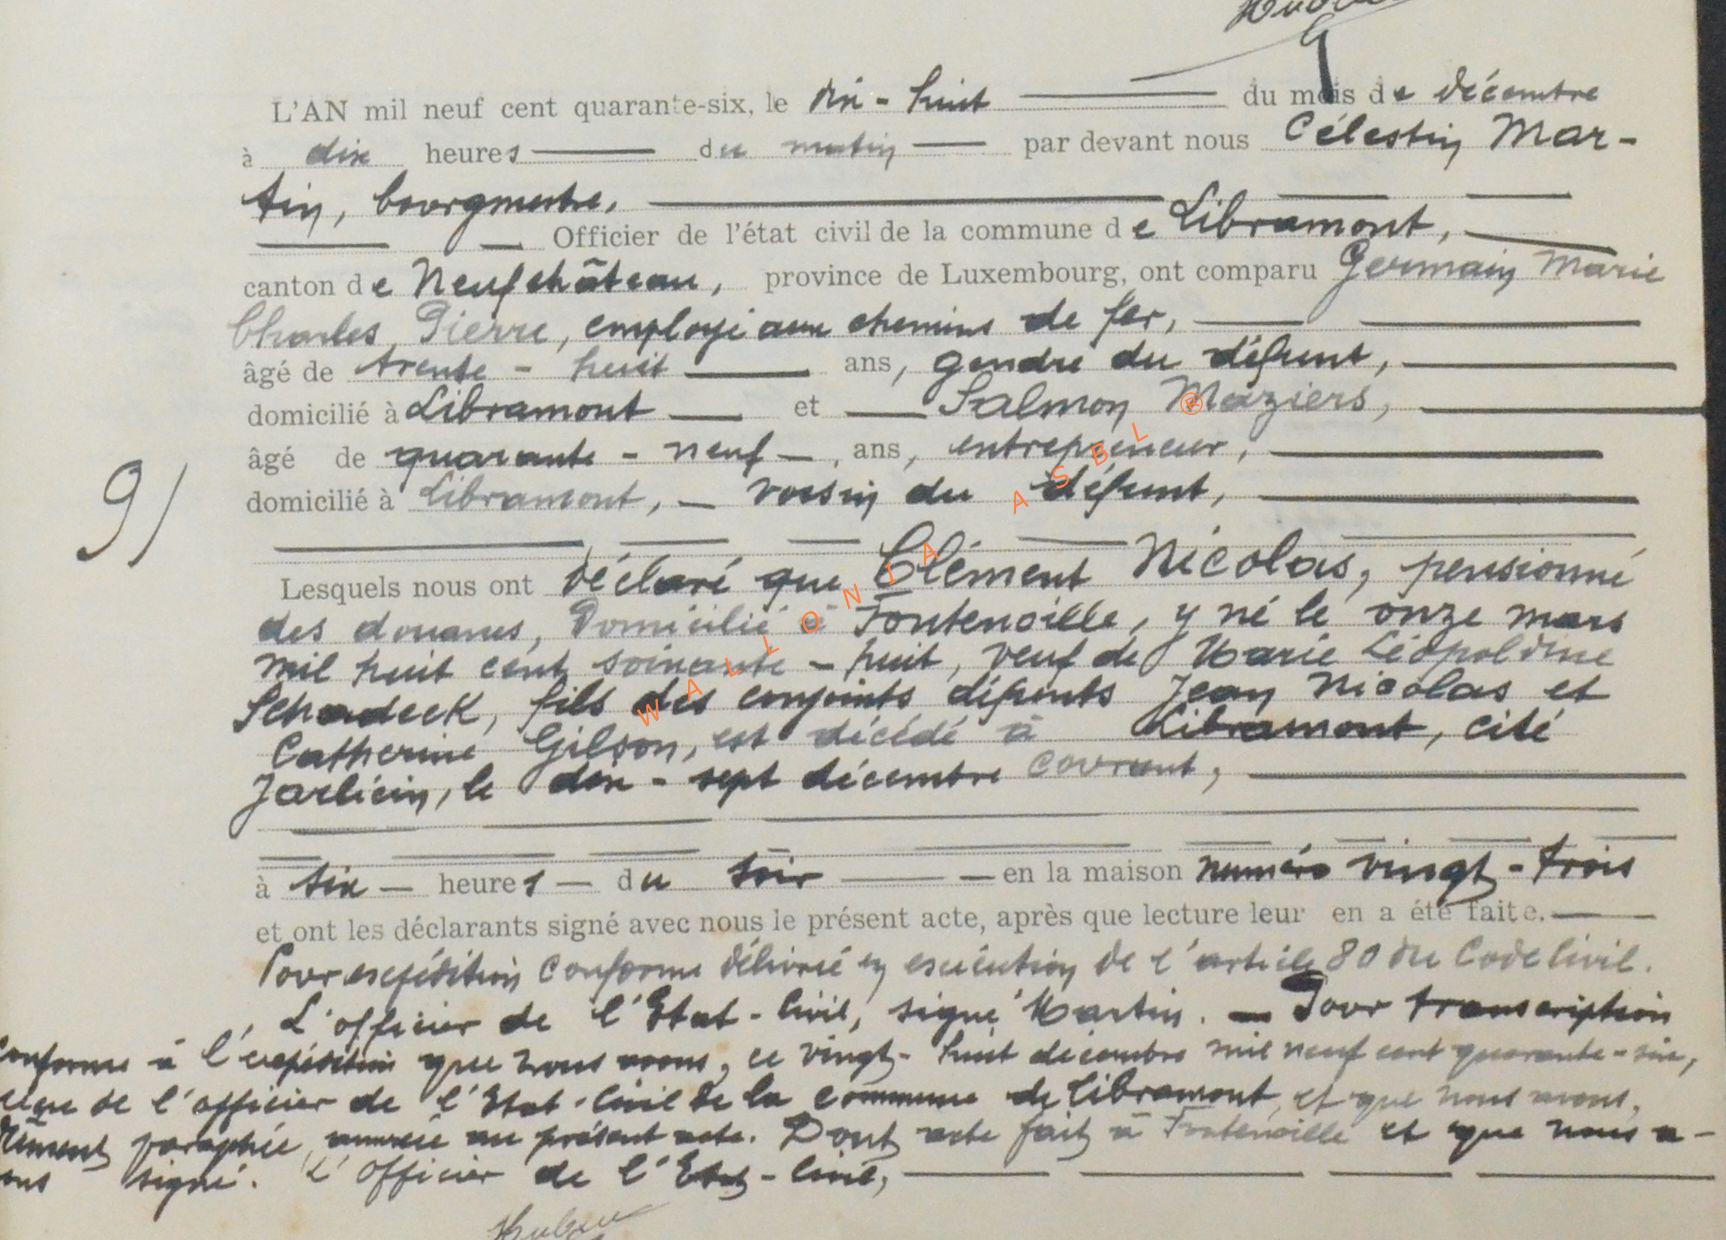 L'AN mil neuf cent quarante-six, le dix-huit du mois de décembre
à dix heures du matin par devant nous Célestin Mar-
tin, bourgmestre,
Officier de l'état civil de la commune de Libramont,
canton de Neufchâteau, province de Luxembourg, ont comparu Germain Marie
Charles Pierre, employé aux chemins de fer,
âgé de trente-huit ans, gendre du défunt,
domicilié à Libramont et Salmon Maziers,
âgé de quarante-neuf, ans, entrepreneur,
domicilié à Libramont, voisin du défunt,
91
Lesquels nous ont déclaré que Clément Nicolas, pensionné
des douanes, Domicilié à Fontenoille, y né le onze mars
mil huit cent soixante-huit, veuf de Marie Léopoldine
Schadeck, fils des conjoints défunts Jean Nicolas et
Catherine Gilson, est décédé à Libramont, cité
Jarlicin, le dix-sept décembre courant,
à six heures du soir en la maison numéro vingt-trois
et ont les déclarants signé avec nous le présent acte, après que lecture leur en a été faite.
Pour expédition conforme délivrée en exécution de l'article 80 du Code Civil.
L'officier de l'Etat-Civil, signé Martin. — Pour transcription
conforme à l'expédition que nous avons, ce vingt-huit décembre mil neuf cent quarante-six,
de l'officier de l'Etat-Civil de la commune de Libramont, et que nous avons,
paraphée, annexée au présent acte. Dont acte fait à Fontenoille et que nous a-
vons signé. L'Officier de l'Etat-Civil,
WALLONIA ASBL ®